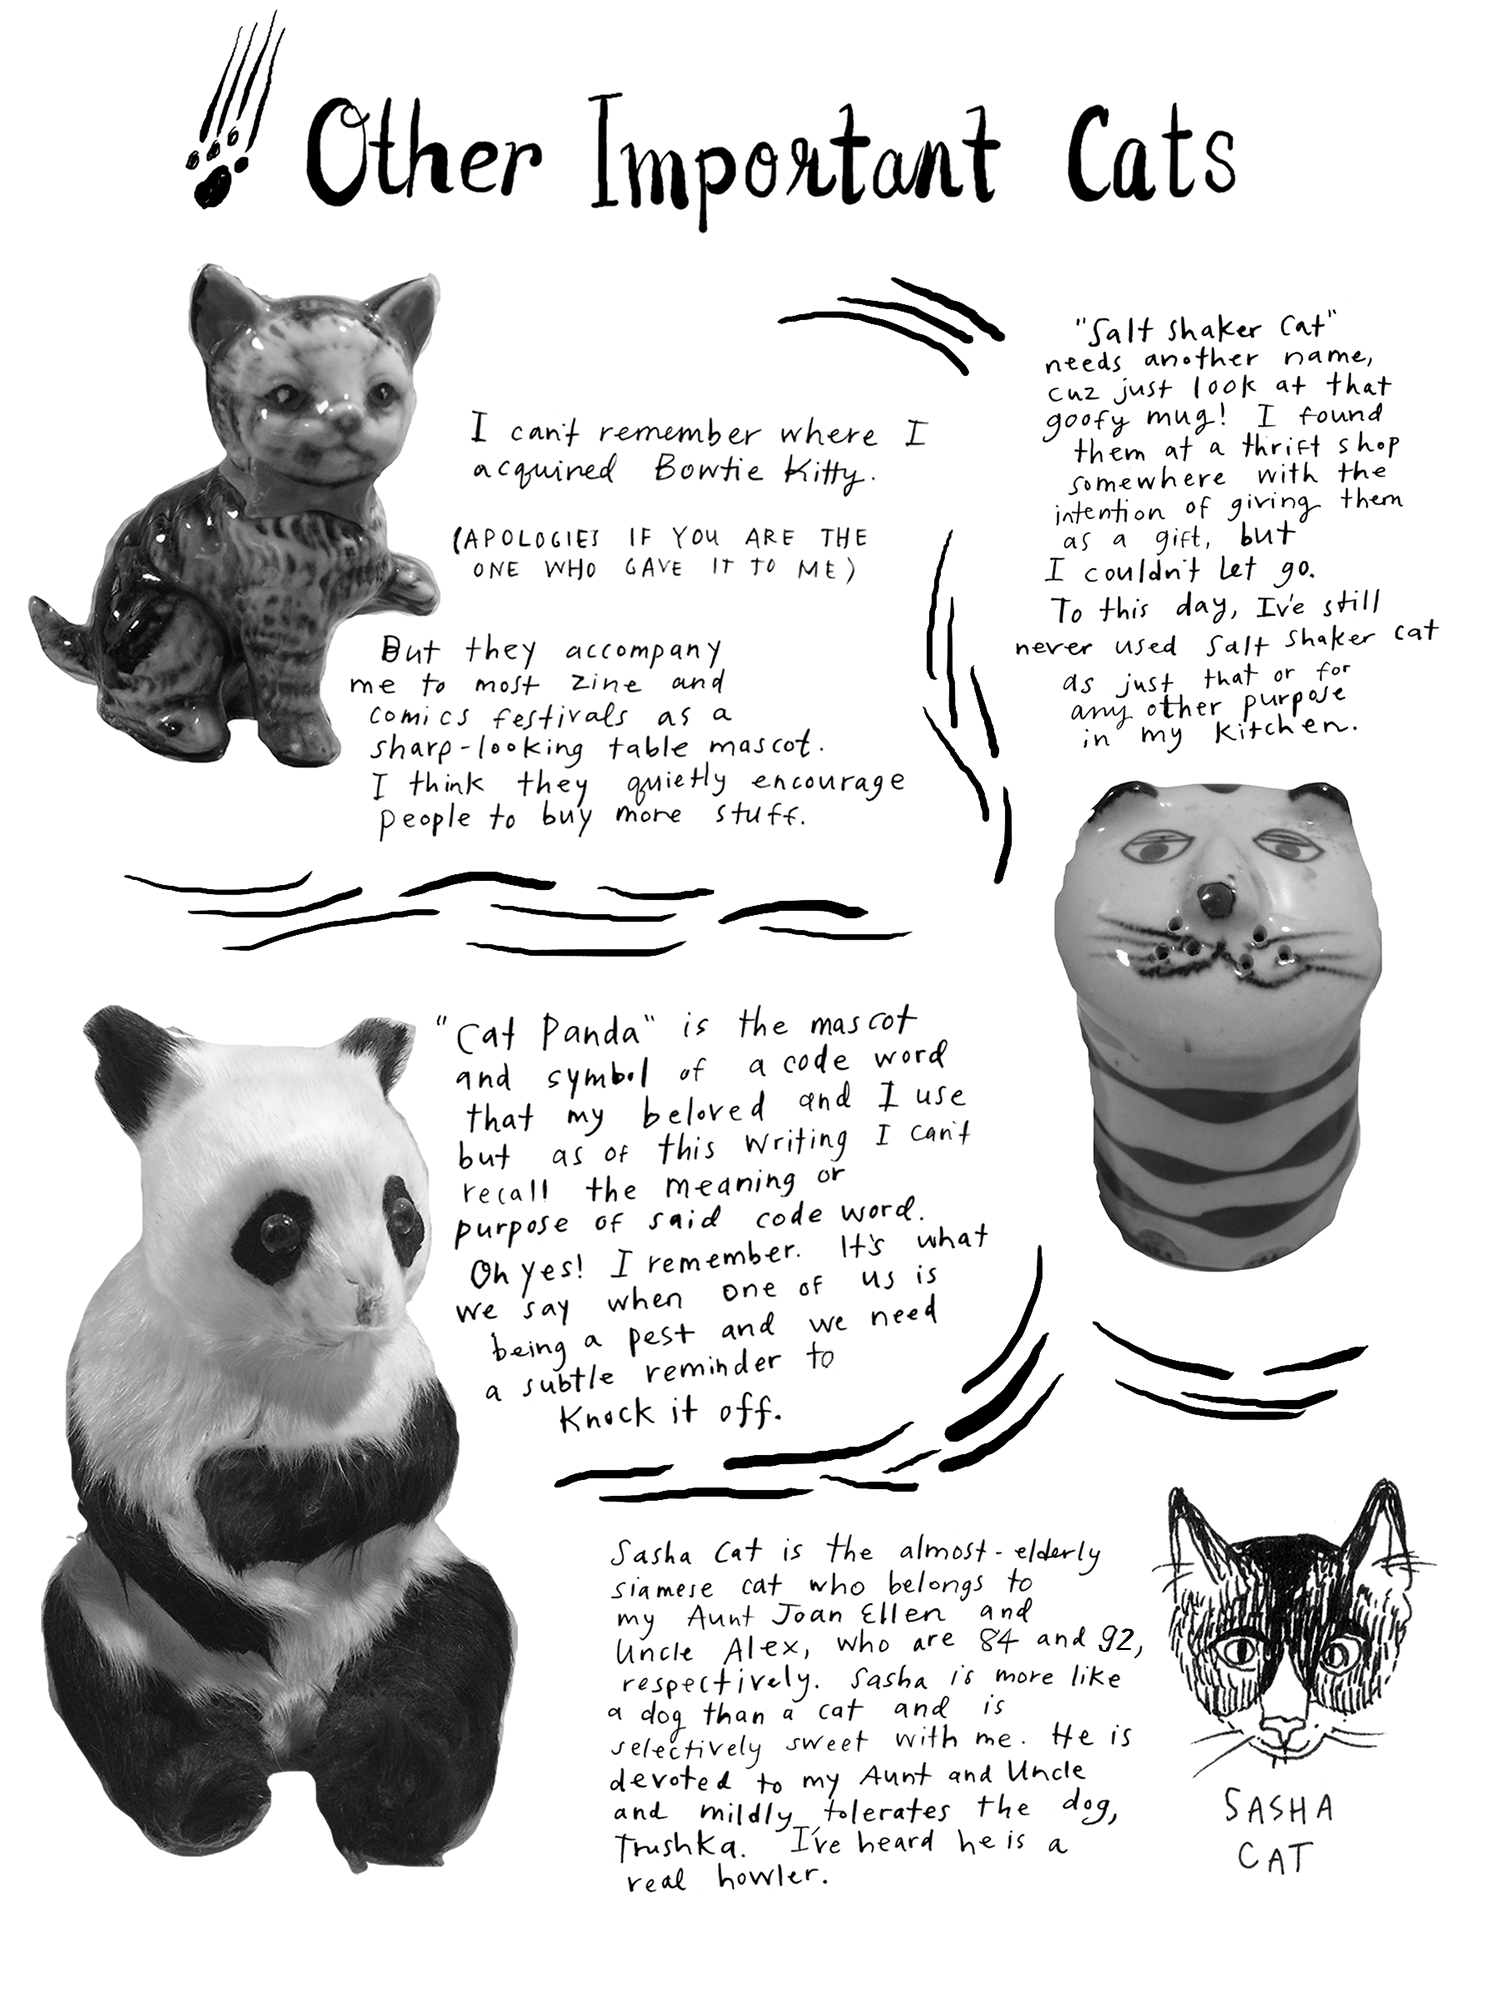 Other Important Cats
I can't remember where I
acquired Bowtie Kitty.
(APOLOGIES IF YOU ARE THE
ONE WHO GAVE IT TO ME)
But they accompany
me to most zine and
comics festivals as a
sharp-looking table mascot.
I think they quietly encourage
people to buy more stuff.
"Salt Shaker Cat"
needs another name,
cuz just look at that
goofy mug! I found
them at a thrift shop
somewhere with the
intention of giving them
as a gift, but
I couldn't let go.
To this day, I've still
never used Salt Shaker Cat
as just that or for
any other purpose
in my kitchen.
"Cat Panda" is the mascot
and symbol of a code word
that my beloved and I use
but as of this writing I can't
recall the meaning or
purpose of said code word.
Oh yes! I remember. It's what
we say when one of us is
being a pest and we need
a subtle reminder to
knock it off.
Sasha Cat is the almost-elderly
siamese cat who belongs to
my Aunt Joan Ellen and
Uncle Alex, who are 84 and 92,
respectively. Sasha is more like
a dog than a cat and is
selectively sweet with me. He is
devoted to my Aunt and Uncle
and mildly tolerates the dog,
Trushka. I've heard he is a
real howler.
SASHA
CAT